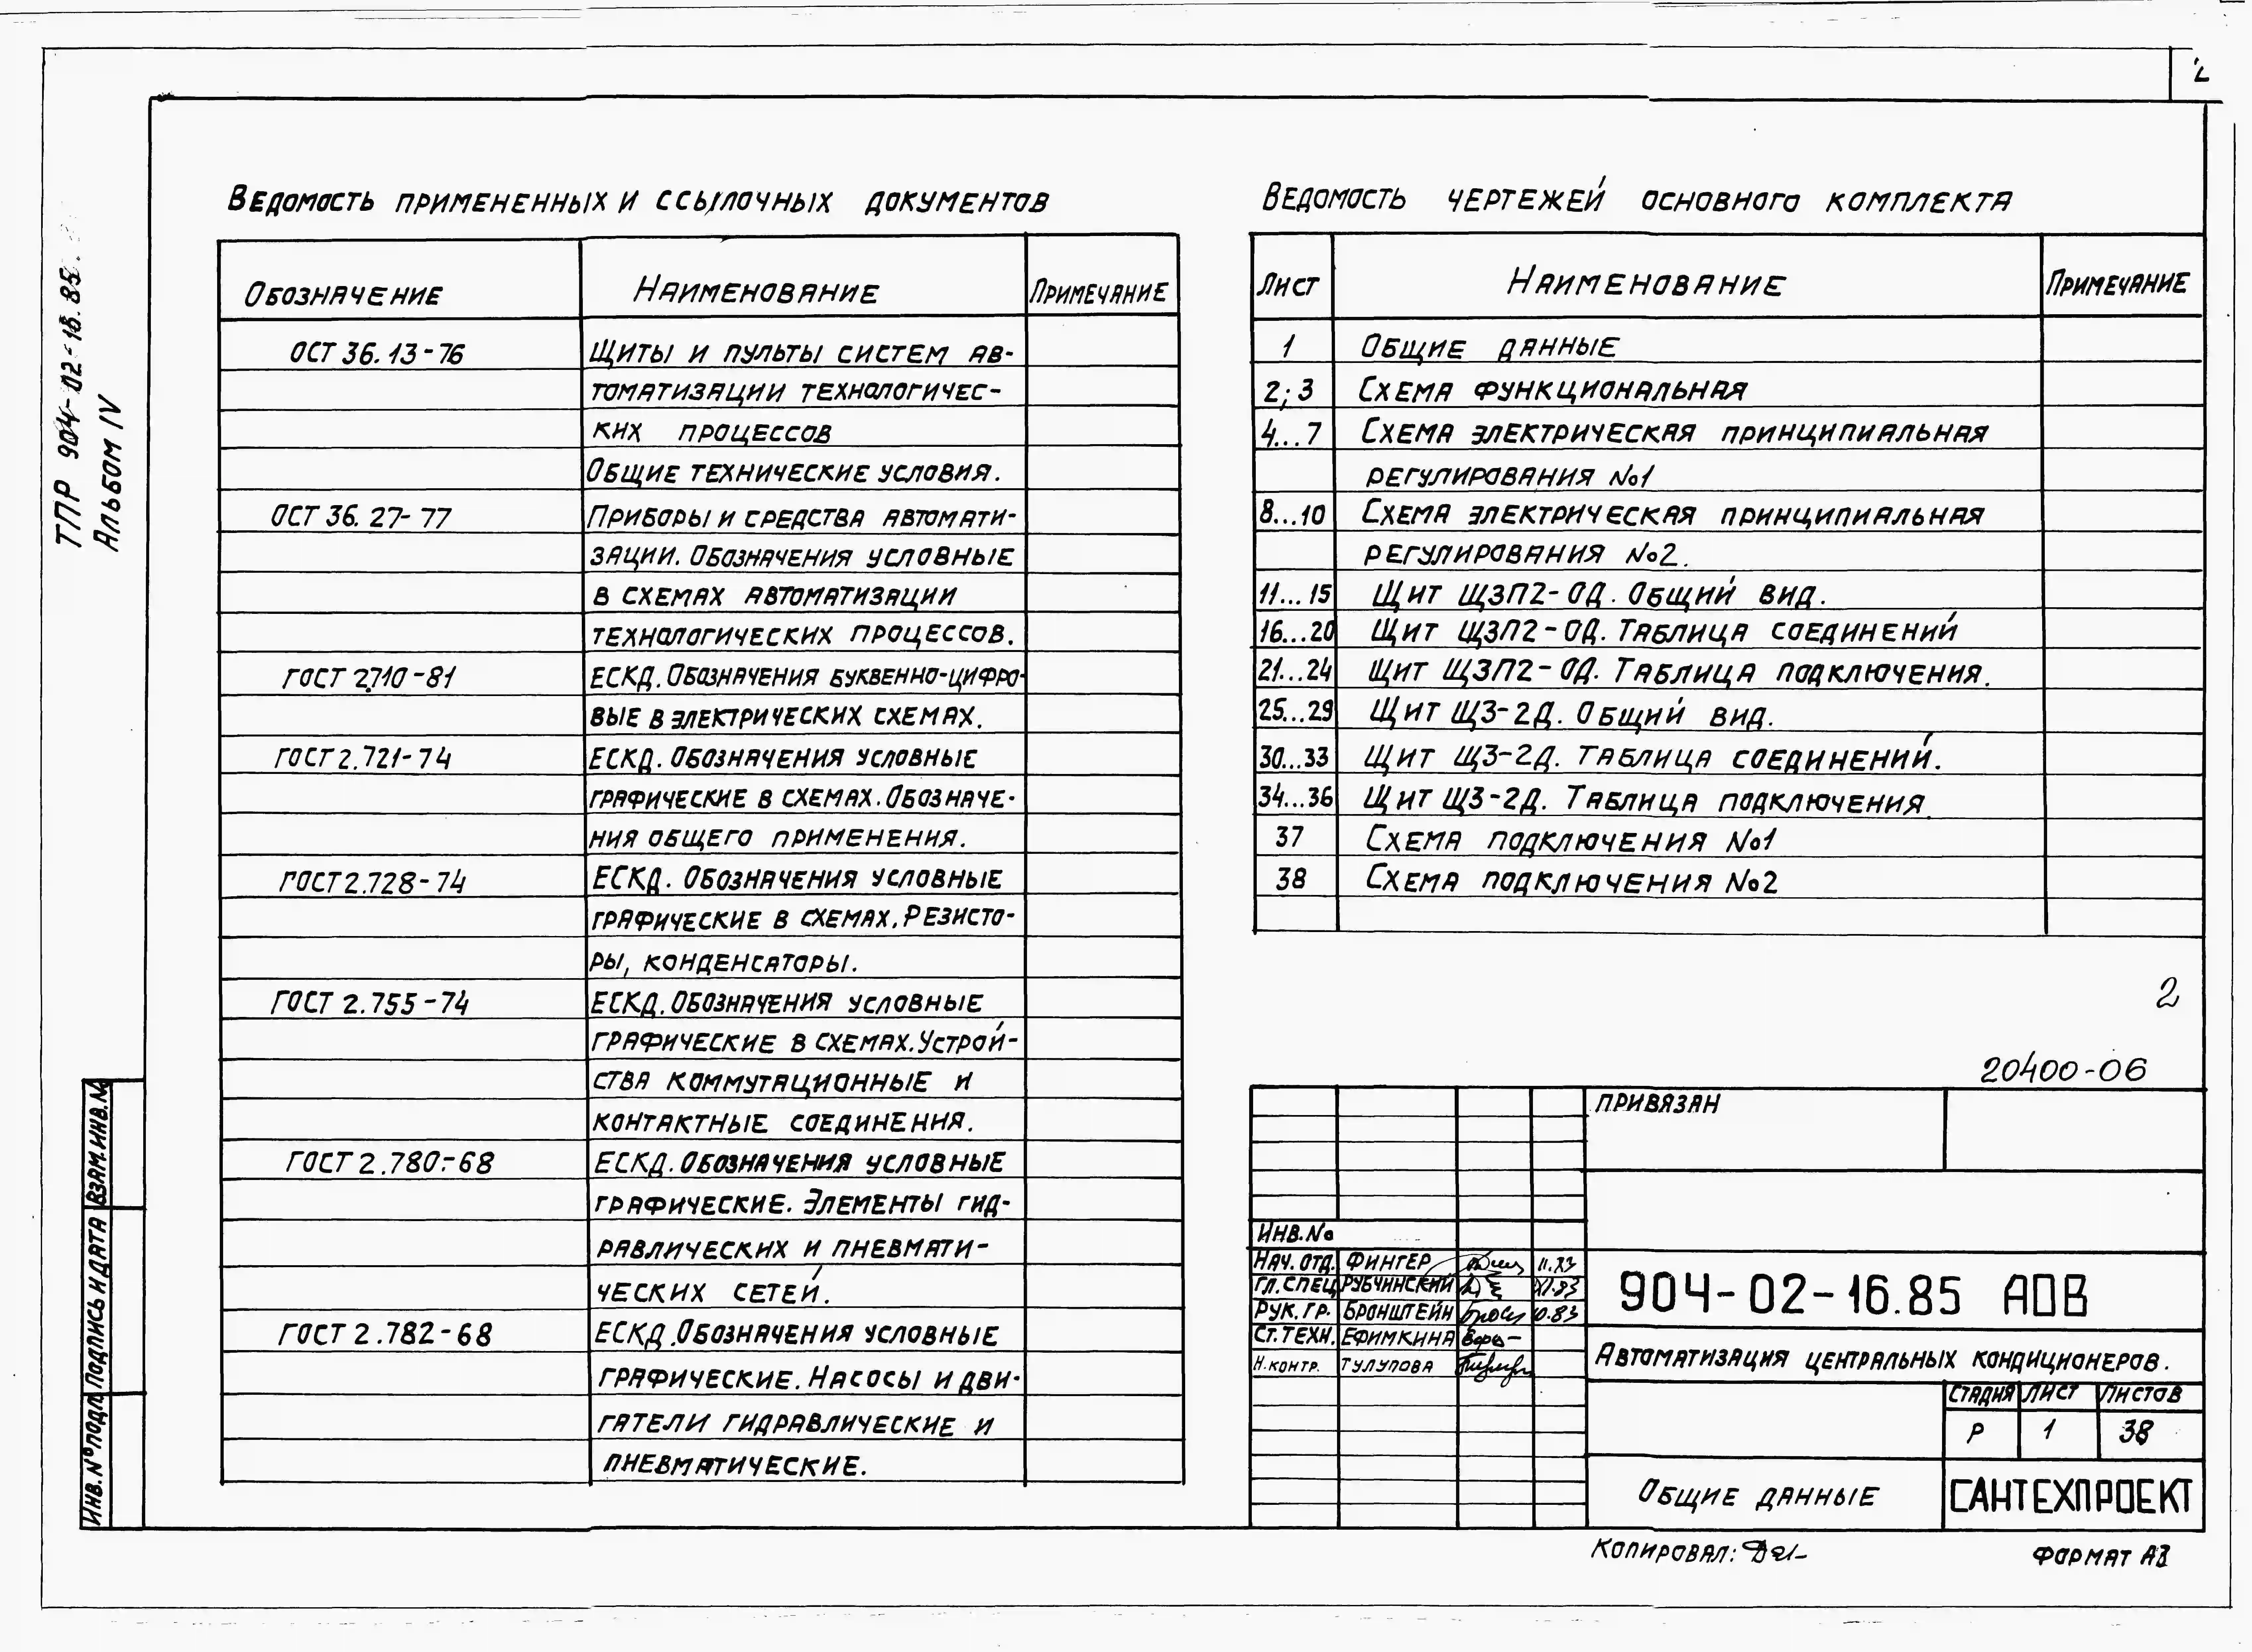 2
ТПР 904-02-16.85.
Альбом IV
Ведомость примененных и ссылочных документов
Обозначение Наименование Примечание
ОСТ 36.13-76 Щиты и пульты систем ав-
томатизации технологичес-
ких процессов
Общие технические условия.
ОСТ 36.27-77 Приборы и средства автомати-
зации. Обозначения условные
в схемах автоматизации
технологических процессов.
ГОСТ 2.710-81 ЕСКД. Обозначения буквенно-цифро-
вые в электрических схемах.
ГОСТ 2.721-74 ЕСКД. Обозначения условные
графические в схемах. Обозначе-
ния общего применения.
ГОСТ 2.728-74 ЕСКД. Обозначения условные
графические в схемах. Резисто-
ры, конденсаторы.
ГОСТ 2.755-74 ЕСКД. Обозначения условные
графические в схемах. Устрой-
ства коммутационные и
контактные соединения.
ГОСТ 2.780-68 ЕСКД. Обозначения условные
графические. Элементы гид-
равлических и пневмати-
ческих сетей.
ГОСТ 2.782-68 ЕСКД. Обозначения условные
графические. Насосы и дви-
гатели гидравлические и
пневматические.
Ведомость чертежей основного комплекта
Лист Наименование Примечание
1 Общие данные
2; 3 Схема функциональная
4...7 Схема электрическая принципиальная
регулирования №1
8...10 Схема электрическая принципиальная
регулирования №2.
11...15 Щит ЩЗП2-ОД. Общий вид.
16...20 Щит ЩЗП2-ОД. Таблица соединений
21...24 Щит ЩЗП2-ОД. Таблица подключения.
25...29 Щит ЩЗ-2Д. Общий вид.
30...33 Щит ЩЗ-2Д. Таблица соединений.
34...36 Щит ЩЗ-2Д. Таблица подключения.
37 Схема подключения №1
38 Схема подключения №2
2
20400-06
Привязан
Инв.№
Нач. отд. Фингер 11.83
Гл. спец Рубчинский XI.83
Рук. гр. Бронштейн 10.83
Ст. техн. Ефимкина
Н. контр. Тулупова
904-02-16.85 АОВ
Автоматизация центральных кондиционеров.
Стадия Лист Листов
Р 1 38
Общие данные
САНТЕХПРОЕКТ
Взам. инв. №
Подпись и дата
Инв. № подл
Копировал:
Формат А3